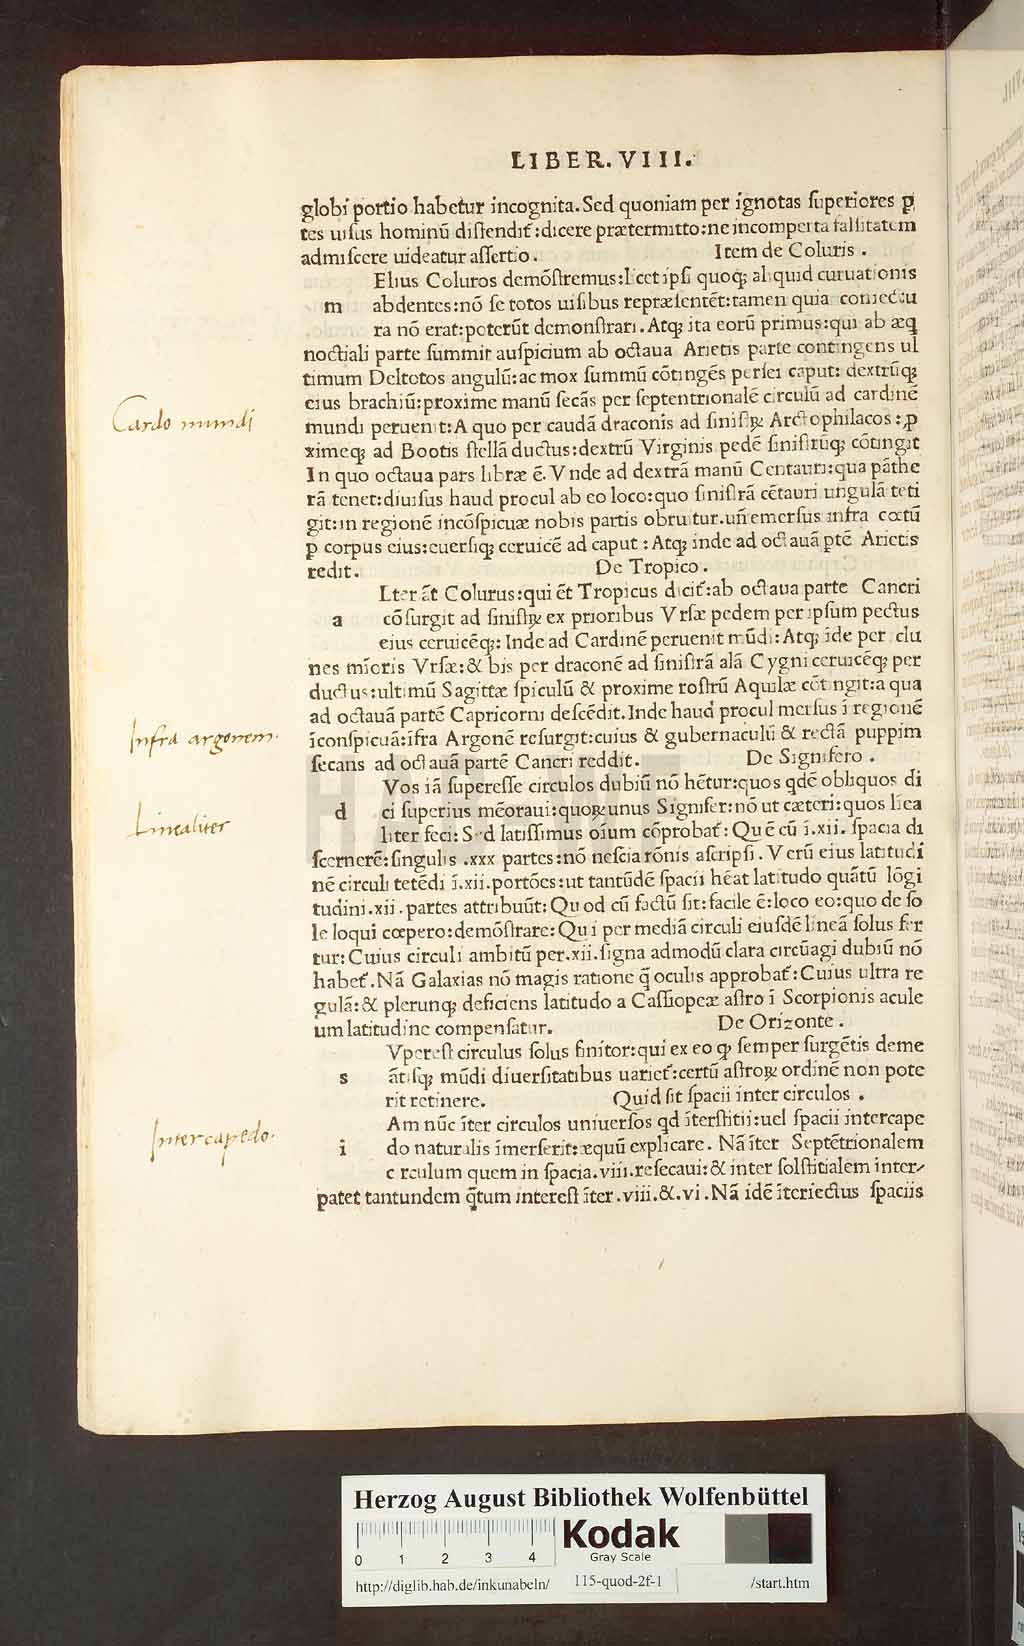 LIBER. VIII.
globi portio habetur incognita. Sed quoniam per ignotas ſuperiores ꝑ
tes uiſus hominū diſtendit᷑:dicere prætermitto:ne incomperta falſitatem
admiſcere uideatur aſſertio. Item de Coluris .
Elius Coluros demōſtremus:licet ipſi quoqꝫ aliquid curuationis
m abdentes:nō ſe totos uiſibus repræſentēt:tamen quia coniectu
ra nō erat:poterūt demonſtrari. Atqꝫ ita eorū primus:qui ab æq
noctiali parte ſummit auſpicium ab octaua Arietis parte contingens ul
timum Deltotos angulū:ac mox ſummū cōtingēs perſei caput: dextrūqꝫ
eius brachiū:proxime manū ſecās per ſeptentrionalē circulū ad cardinē
Cardo mundi
mundi peruenit:A quo per caudā draconis ad ſiniſtꝝ Arctophilacos:ꝓ
ximeqꝫ ad Bootis ſtellā ductus:dextrū Virginis pedē ſiniſtrūqꝫ cōtingit
In quo octaua pars libræ ē. Vnde ad dextrā manū Centauri:qua pāthe
rā tenet:diuiſus haud procul ab eo loco:quo ſiniſtrā cētauri ungulā teti
git:in regionē incōſpicuæ nobis partis obruitur.uñ emerſus infra cœtū
ꝑ corpus eius:euerſiqꝫ ceruicē ad caput : Atqꝫ inde ad octauā ptē Arietis
redit. De Tropico.
Lter āt Colurus:qui ēt Tropicus dicit᷑:ab octaua parte Cancri
a cōſurgit ad ſiniſtꝝ ex prioribus Vrſæ pedem per ipſum pectus
eius ceruicēqꝫ: Inde ad Cardinē peruenit mūdi: Atqꝫ īde per clu
nes mīoris Vrſæ:& bis per draconē ad ſiniſtrā alā Cygni ceruicēqꝫ per
ductus:ultimū Sagittæ ſpiculū & proxime roſtrū Aquilæ cōtingit:a qua
ad octauā partē Capricorni deſcēdit. Inde haud procul merſus ī regionē
Infra argonem.
īconſpicuā:īfra Argonē reſurgit:cuius & gubernaculū & rectā puppim
ſecans ad octauā partē Cancri reddit. De Signifero .
Vos iā ſupereſſe circulos dubiū nō hēt᷑ur:quos qdē obliquos di
d ci ſuperius mēoraui:quoꝝ unus Signifer:nō ut cæteri:quos liea
Linealiter
liter feci: Sed latiſſimus oīum cōprobat᷑: Qu ē cū ī.xii. ſpacia di
ſcernerē:ſingulis .xxx partes:nō neſcia rōnis aſcripſi. Verū eius latitudi
nē circuli tetēdi ī.xii.portōes:ut tantūdē ſpacii hēat latitudo quātū lōgi
tudini.xii. partes attribuūt: Quod cū factū ſit:facile ē:loco eo:quo de ſo
le loqui cœpero:demōſtrare: Qui per mediā circuli eiuſdē lineā ſolus fer
tur: Cuius circuli ambitū per.xii.ſigna admodū clara circūagi dubiū nō
habet᷑. Nā Galaxias nō magis ratione q̄ oculis approbat᷑: Cuius ultra re
gulā:& plerunqꝫ deficiens latitudo a Caſſiopeæ aſtro ī Scorpionis acule
um latitudine compenſatur. De Orizonte .
Vpereſt circulus ſolus finitor:qui ex eo qꝫ ſemper ſurgētis deme
s ātiſqꝫ mūdi diuerſitatibus uariet᷑:certū aſtroꝝ ordinē non pote
rit retinere. Quid ſit ſpacii inter circulos .
Am nūc īter circulos uniuerſos qd īterſtitii:uel ſpacii intercape
Intercapedo.
i do naturalis īmerſerit:æquū explicare. Nā īter Septētrionalem
c rculum quem in ſpacia.viii.reſecaui:& inter ſolſtitialem inter⸗
patet tantundem q̄tum intereſt īter .viii.&.vi. Nā idē īteriectus ſpaciis
Herzog August Bibliothek Wolfenbüttel
0 1 2 3 4
Kodak
Gray Scale
http://diglib.hab.de/inkunabeln/ 115-quod-2f-1 /start.htm